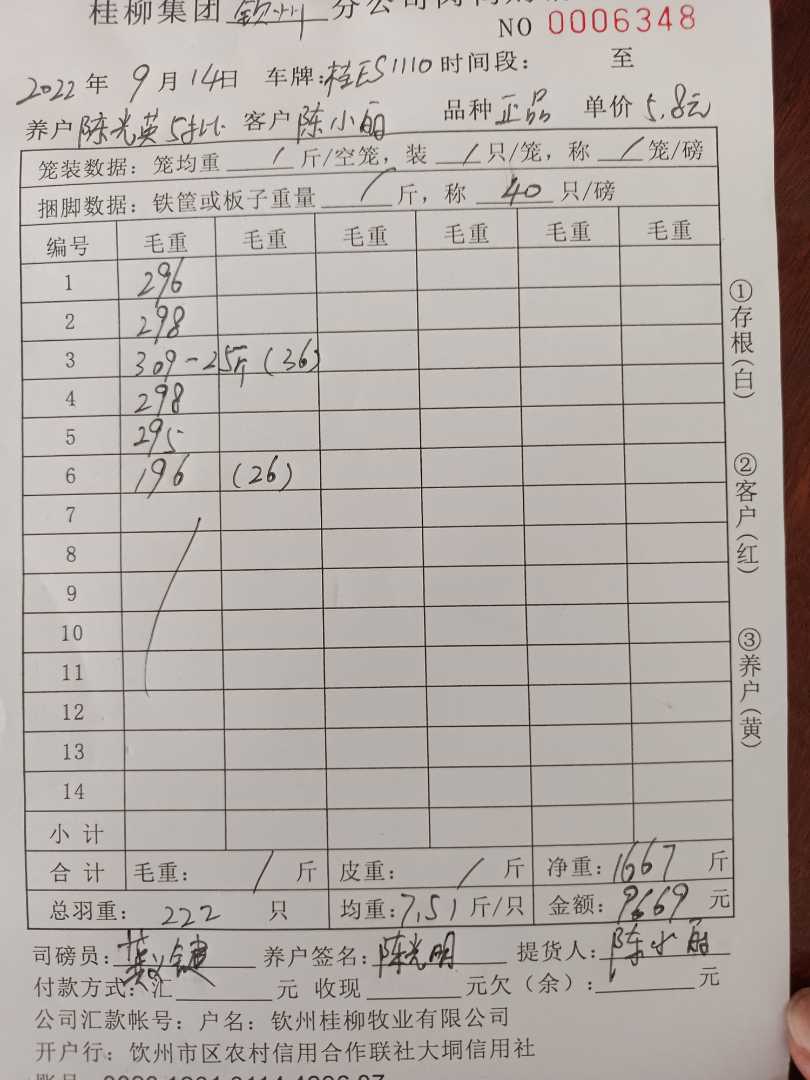 桂柳集团 钦州 分公司
NO 0006348
2022年 9月14日 车牌:桂ES1110 时间段: 至
养户 陈光英5批 客户 陈小丽 品种 正品 单价 5.8元
笼装数据: 笼均重 / 斤/空笼, 装 / 只/笼, 称 / 笼/磅
捆脚数据: 铁筐或板子重量 / 斤, 称 40 只/磅
编号 毛重 毛重 毛重 毛重 毛重 毛重
1 296
2 298
3 309-25斤(36)
4 298
5 295
6 196 (26)
7
8
9
10
11
12
13
14
小计
合计 毛重: / 斤 皮重: / 斤 净重: 1667 斤
总羽重: 222 只 均重: 7.51 斤/只 金额: 9669 元
司磅员: 养户签名: 陈光明 提货人: 陈小丽
付款方式: 汇 元 收现 元欠(余): 元
公司汇款帐号: 户名: 钦州桂柳牧业有限公司
开户行: 钦州市区农村信用合作联社大垌信用社
①存根(白)
②客户(红)
③养户(黄)